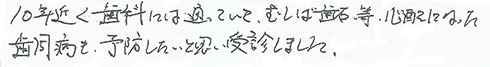 10年近く歯科には通っていて、むしば歯石等、心配になった
歯周病も、予防したいと思い受診しました。